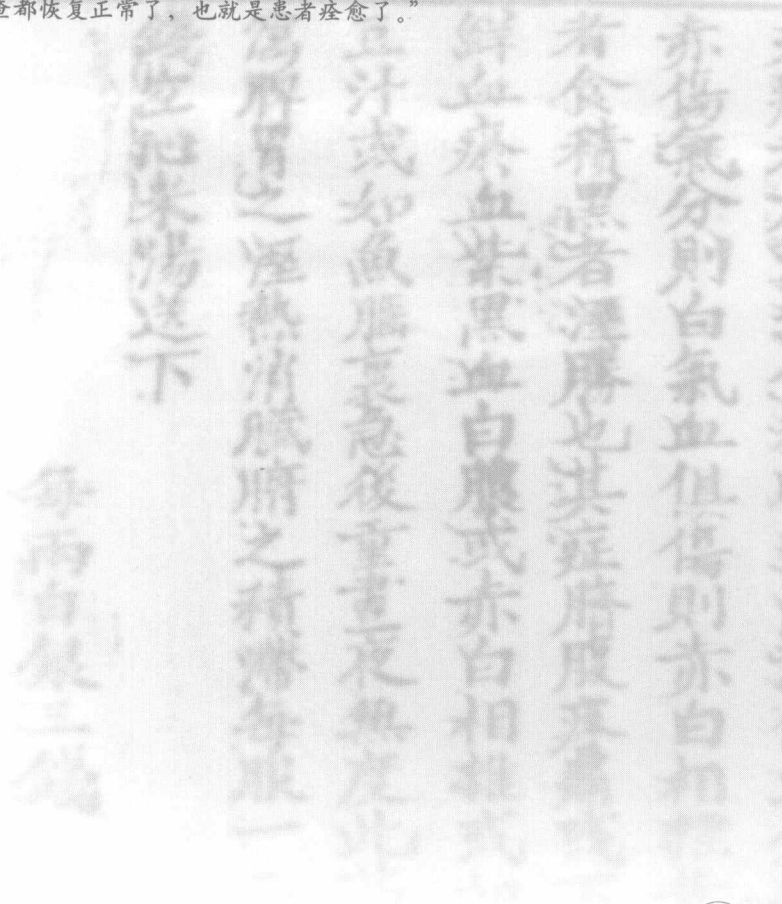 查都恢复正常了，也就是患者痊愈了。”
赤傷氣分則白氣血俱傷則赤白相
者食積黑者濕勝也其症臍腹疼痛或下
鮮血瘀血紫黑血白膿或赤白相雜或
豆汁或如魚腦裏急後重晝夜無度此
傷脾胃之濕熱消臟腑之積滯每服一
空心米湯送下
每兩白銀三錢